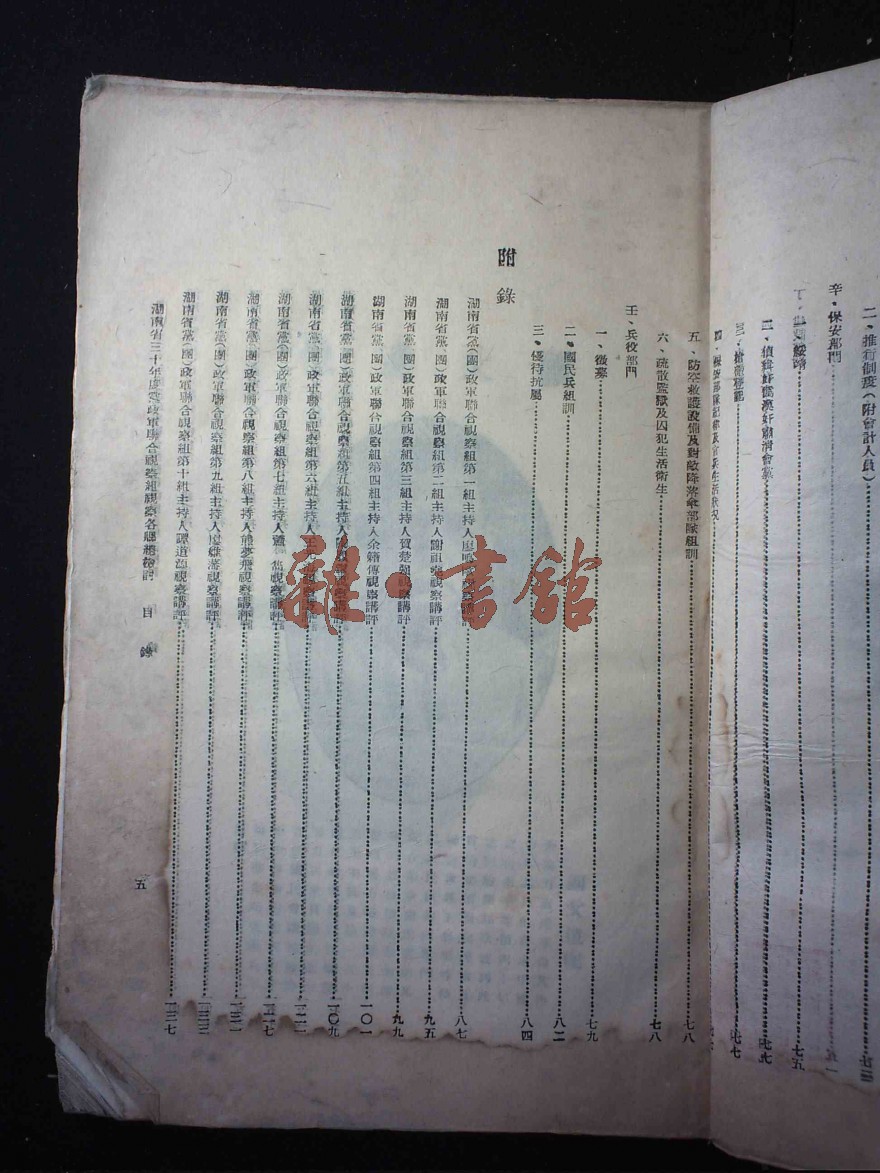 二、推行制度(附會計人員)
辛、保安部門
綏靖……七五
二、偵緝奸僞漢奸肅清會黨……七七
三、槍礮登記……七七
四、
五、防空救護設備及對敵降落傘部隊組訓……七八
六、疏散監獄及囚犯生活衛生……七八
壬、兵役部門
一、徵募……七九
二、國民兵組訓……八二
三、優待抗屬……八四
附錄
湖南省黨(團)政軍聯合視察組第一組主持人視察講評……八七
湖南省黨(團)政軍聯合視察組第二組主持人謝祖堯視察講評……九五
湖南省黨(團)政軍聯合視察組第三組主持人賀楚強視察講評……九九
湖南省黨(團)政軍聯合視察組第四組主持人余籍傳視察講評……一〇一
湖南省黨(團)政軍聯合視察組第五組主持人視察講評……一〇九
湖南省黨(團)政軍聯合視察組第六組主持人王視察講評……一一二
湖南省黨(團)政軍聯合視察組第七組主持人視察講評……一一七
湖南省黨(團)政軍聯合視察組第八組主持人熊夢飛視察講評……一二一
湖南省黨(團)政軍聯合視察組第九組主持人廖維藩視察講評……一二三
湖南省黨(團)政軍聯合視察組第十組主持人譚道源視察講評……一二七
湖南省三十年度黨政軍聯合視察組視察各縣總檢討 目錄
五
雜·書館